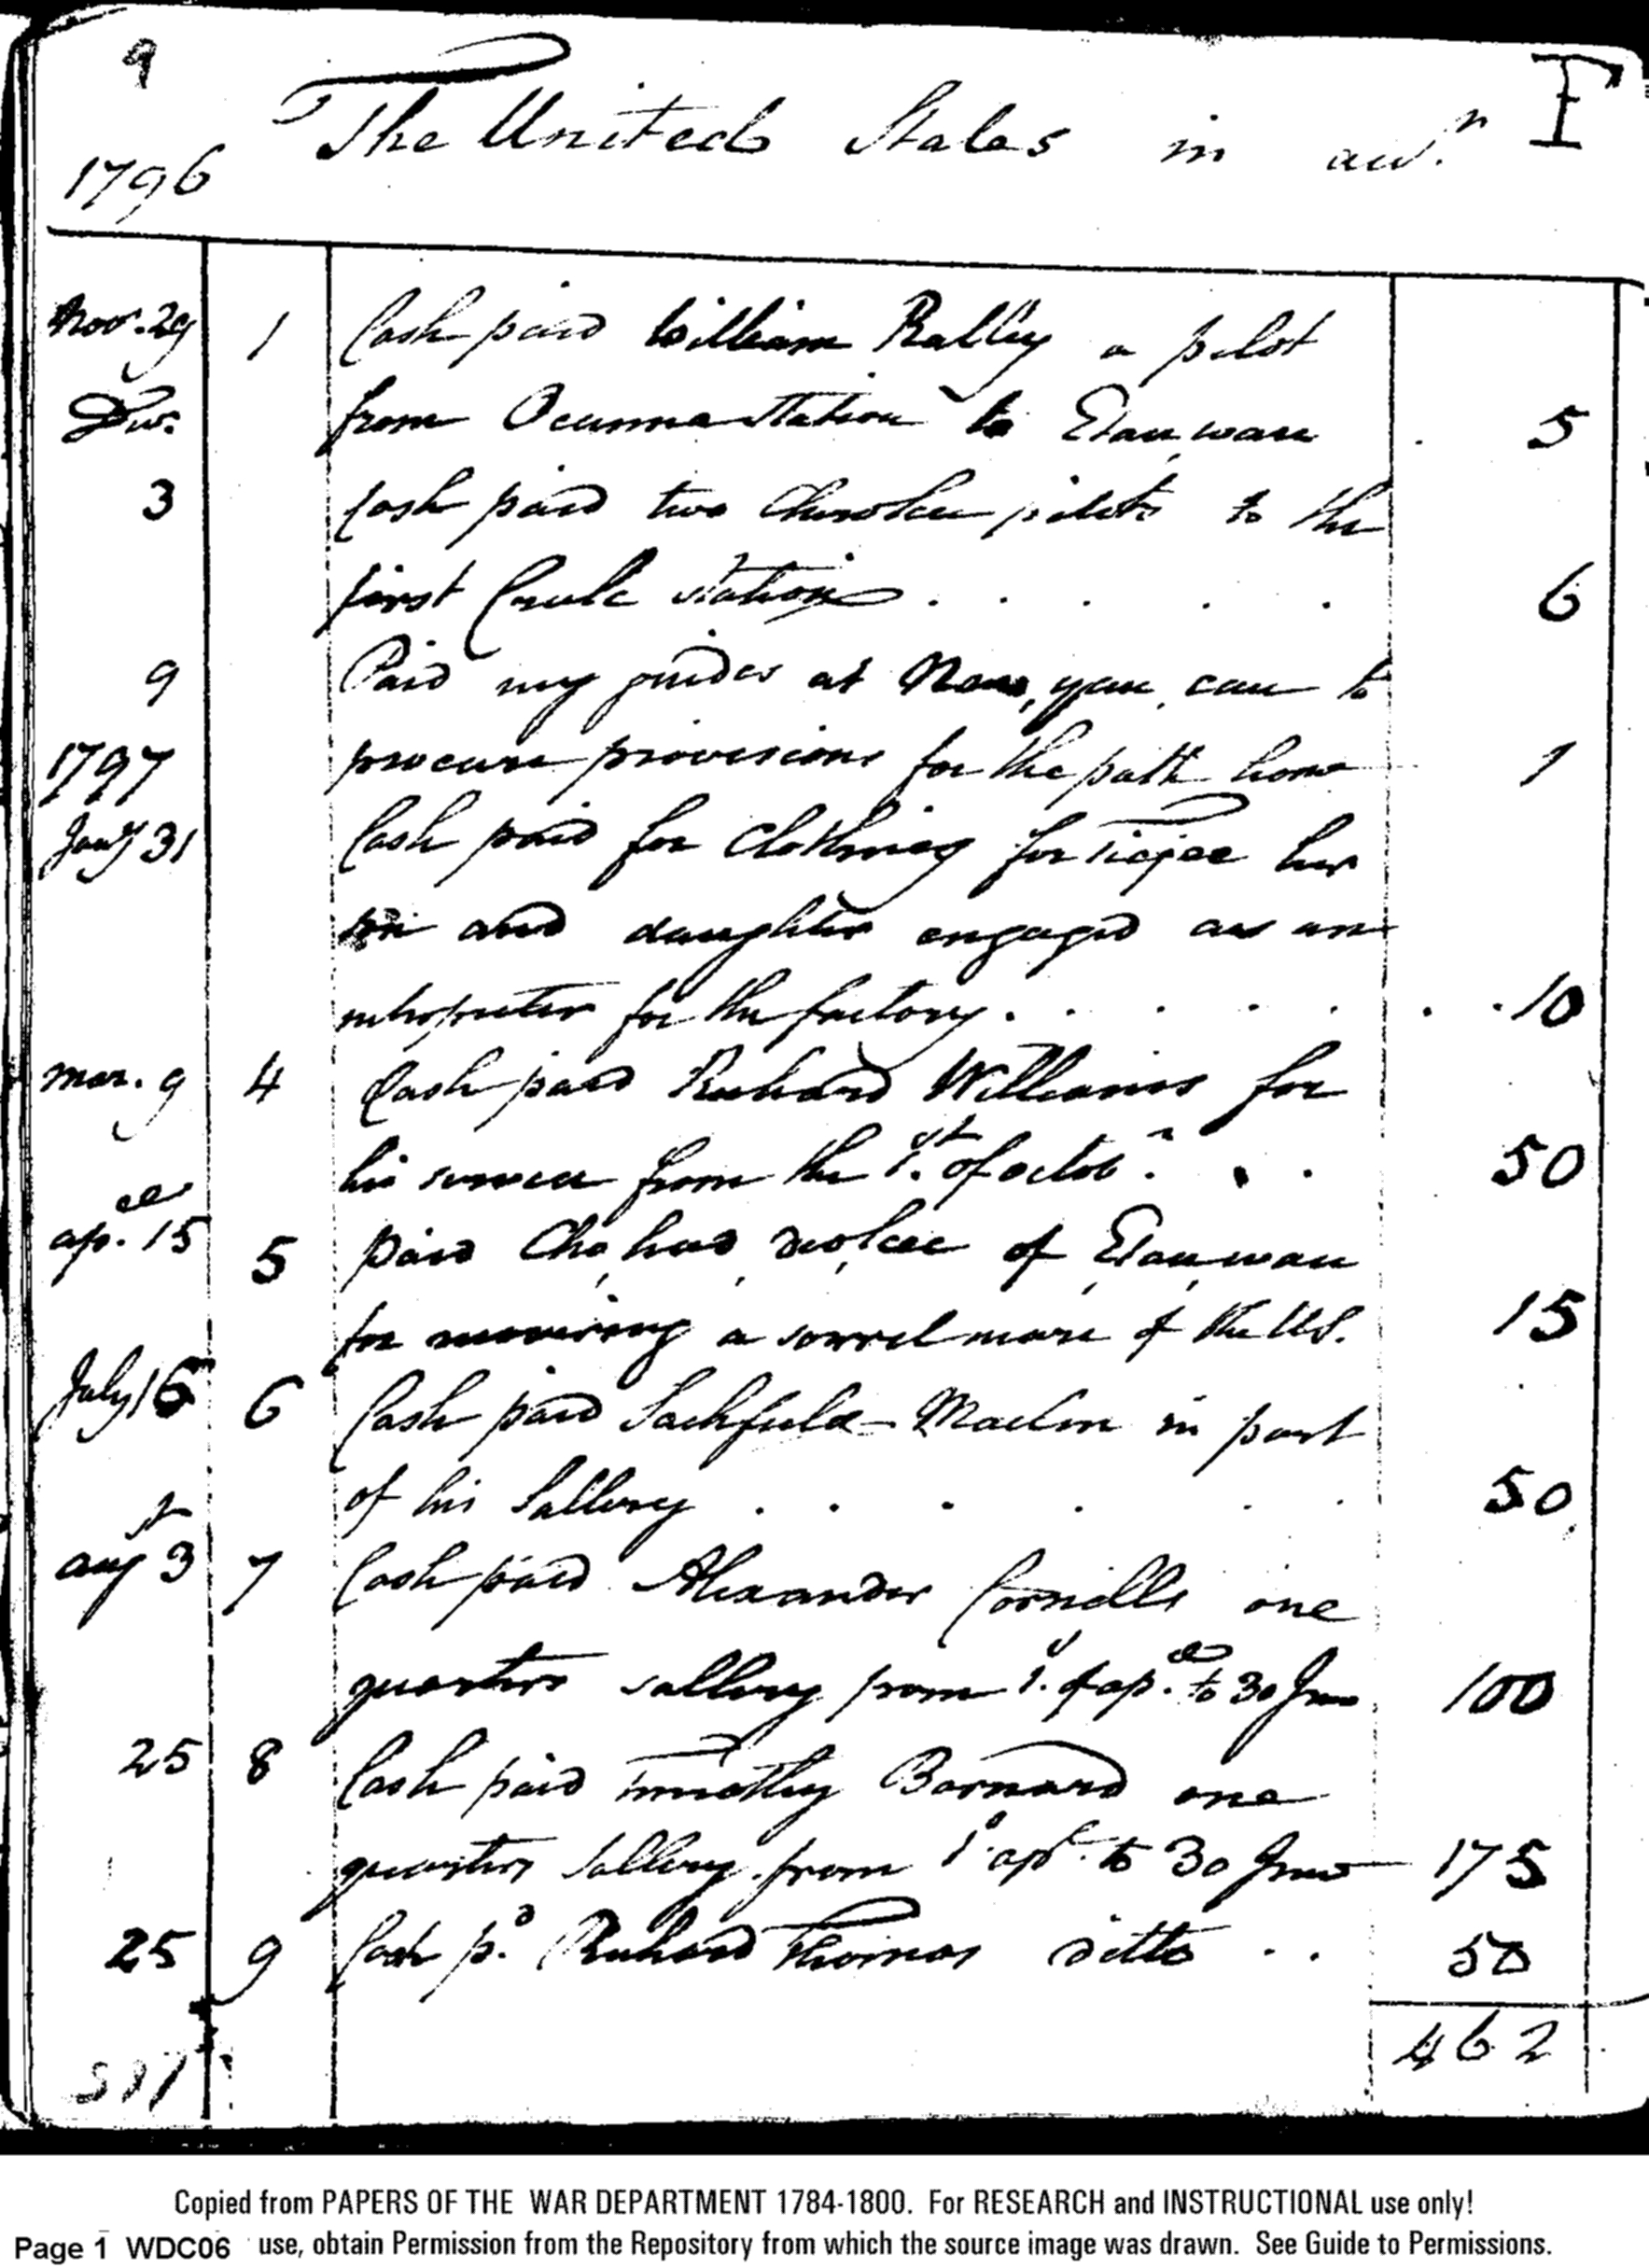 9
F
The United States in acc.
1796
Nov. 29 1 Cash paid William Ralley a pilot
Dec. from Ocunna Station to Etau,wau . 5
3 Cash paid two Cherokee pilots to the
first Creek station . . . . . 6
9 Paid my guides at New,yau,cau to
1797 procure provisions for the path home 1
Jany 31 Cash paid for Clothing for her
son and daughter engaged as an
interpreter for the factory . . . . . . . 10
Mar. 9 4 Cash paid Richard Williams for
his services from the 1st. of octob.r . . 50
ap.el 15 5 Paid of Etau,wau
for recovering a sorrel mare of the US. 15
July 16 6 Cash paid Sackfield Maclin in part
of his Sallery . . . . . . 50
augst 3 7 Cash paid Alexander Cornells one
quarters sallery from 1. of ap.el to 30 June 100
25 8 Cash paid Timothy Barnard one
quarters Sallery from 1 apl. to 30 June 175
25 9 Cash p.d Richard Thomas ditto . . 50
462
Copied from PAPERS OF THE WAR DEPARTMENT 1784-1800. For RESEARCH and INSTRUCTIONAL use only!
Page 1 WDC06 use, obtain Permission from the Repository from which the source image was drawn. See Guide to Permissions.